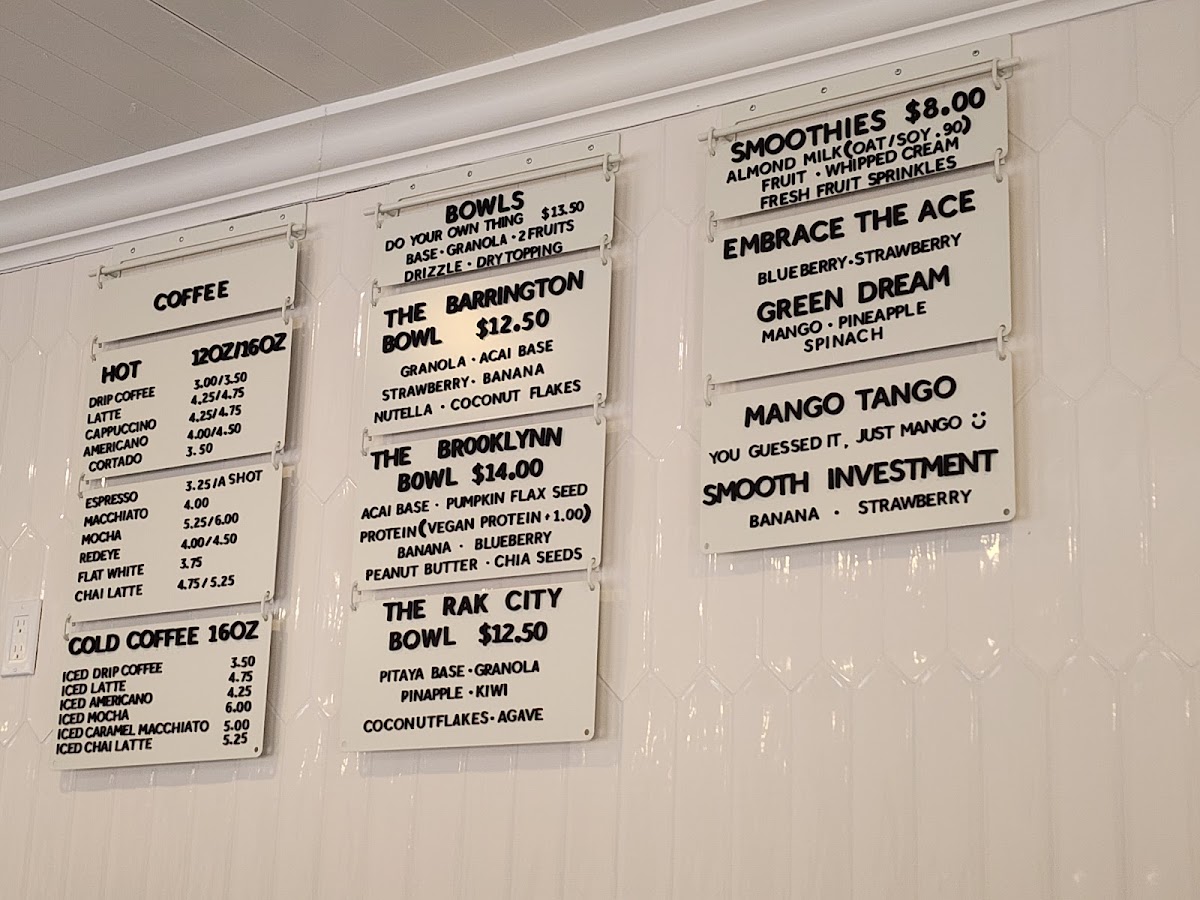 COFFEE
HOT 12OZ/16OZ
DRIP COFFEE 3.00/3.50
LATTE 4.25/4.75
CAPPUCCINO 4.25/4.75
AMERICANO 4.00/4.50
CORTADO 3.50
ESPRESSO 3.25/A SHOT
MACCHIATO 4.00
MOCHA 5.25/6.00
REDEYE 4.00/4.50
FLAT WHITE 3.75
CHAI LATTE 4.75/5.25
COLD COFFEE 16OZ
ICED DRIP COFFEE 3.50
ICED LATTE 4.75
ICED AMERICANO 4.25
ICED MOCHA 6.00
ICED CARAMEL MACCHIATO 5.00
ICED CHAI LATTE 5.25
BOWLS
DO YOUR OWN THING $13.50
BASE · GRANOLA · 2 FRUITS
DRIZZLE · DRY TOPPING
THE BARRINGTON
BOWL $12.50
GRANOLA · ACAI BASE
STRAWBERRY · BANANA
NUTELLA · COCONUT FLAKES
THE BROOKLYNN
BOWL $14.00
ACAI BASE · PUMPKIN FLAX SEED
PROTEIN (VEGAN PROTEIN + 1.00)
BANANA · BLUEBERRY
PEANUT BUTTER · CHIA SEEDS
THE RAK CITY
BOWL $12.50
PITAYA BASE · GRANOLA
PINAPPLE · KIWI
COCONUTFLAKES · AGAVE
SMOOTHIES $8.00
ALMOND MILK (OAT/SOY .90)
FRUIT · WHIPPED CREAM
FRESH FRUIT SPRINKLES
EMBRACE THE ACE
BLUEBERRY · STRAWBERRY
GREEN DREAM
MANGO · PINEAPPLE
SPINACH
MANGO TANGO
YOU GUESSED IT, JUST MANGO
SMOOTH INVESTMENT
BANANA · STRAWBERRY